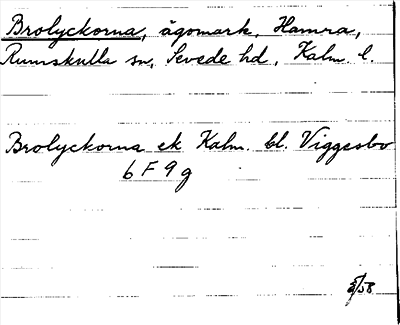 Brolyckorna, ägomark, Hamra,
Rumskulla sn, Sevede hd, Kalm. l.
Brolyckorna ek Kalm. bl. Viggesbo
6 F 9 g
/58